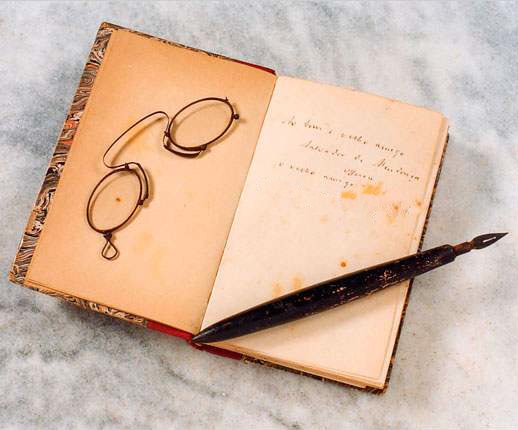 Ao bom e velho amigo
Salvador de Mendonça
o velho amigo